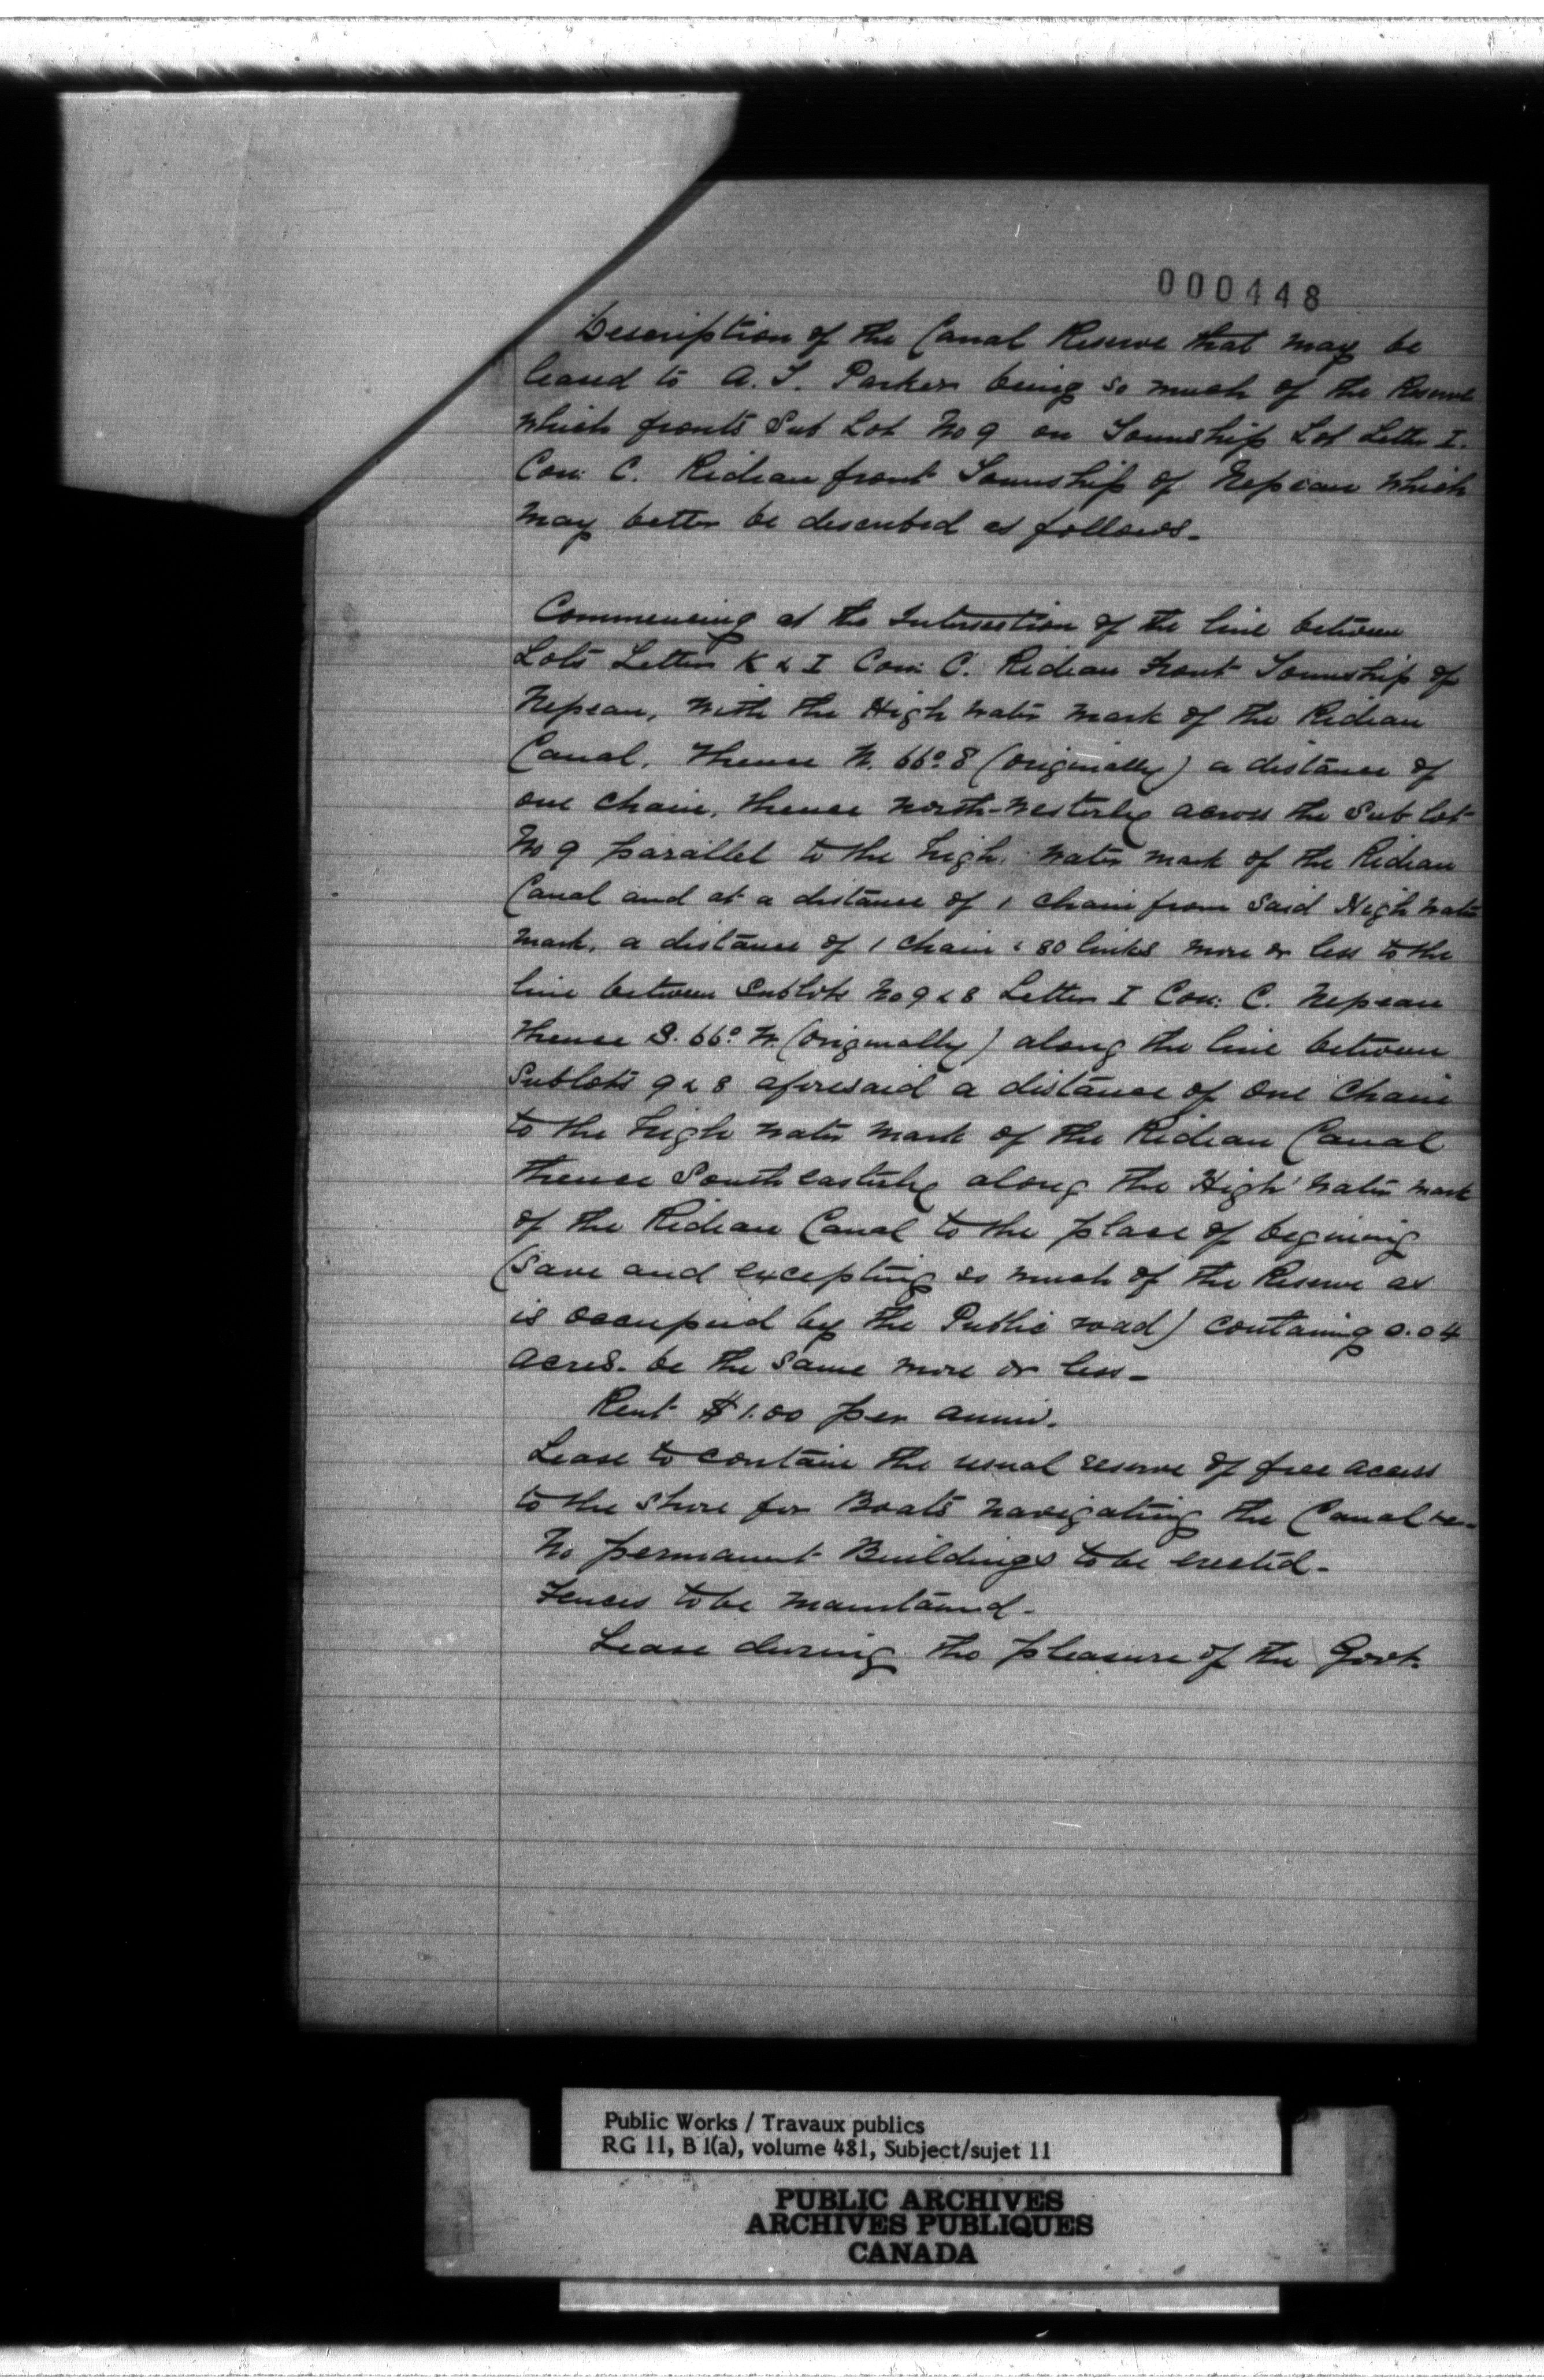 000448
Description of the Canal Reserve that may be
leased to A. T. Parker being so much of the Reserve
which fronts Sub Lot No 9 on Township Lot Letter I.
Con: C. Rideau front Township of Nepean which
may better be described as follows.
Commencing at the Intersection of the line between
Lots Letters K & I Con: C. Rideau Front Township of
Nepean, with the High water mark of the Rideau
Canal. Thence N. 66° E (originally) a distance of
one chain, thence north-westerly across the Sub lot
No 9 parallel to the high water mark of the Rideau
Canal and at a distance of 1 chain from said High water
mark, a distance of 1 chain & 80 links more or less to the
line between Sublots No 9 & 8 Letter I Con: C. Nepean
thence S. 66° W. (originally) along the line between
Sublots 9 & 8 aforesaid a distance of One Chain
to the high water mark of the Rideau Canal
thence South easterly along the High water mark
of the Rideau Canal to the place of begining
(Save and excepting so much of the Reserve as
is occupied by the Public road) containing 0.04
acres. be the same more or less -
Rent $1.00 per annum.
Lease to contain the usual reserve of free access
to the shore for Boats navigating the Canal
No permanent Buildings to be erected -
Fences to be maintained -
Lease during the pleasure of the Govt.
Public Works / Travaux publics
RG 11, B 1(a), volume 481, Subject/sujet 11
PUBLIC ARCHIVES
ARCHIVES PUBLIQUES
CANADA